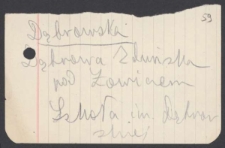 59
Dąbrowski
Dąbrowa Zduńska
pod Łowiczem
Szkoła im. Dąbrow
skiej